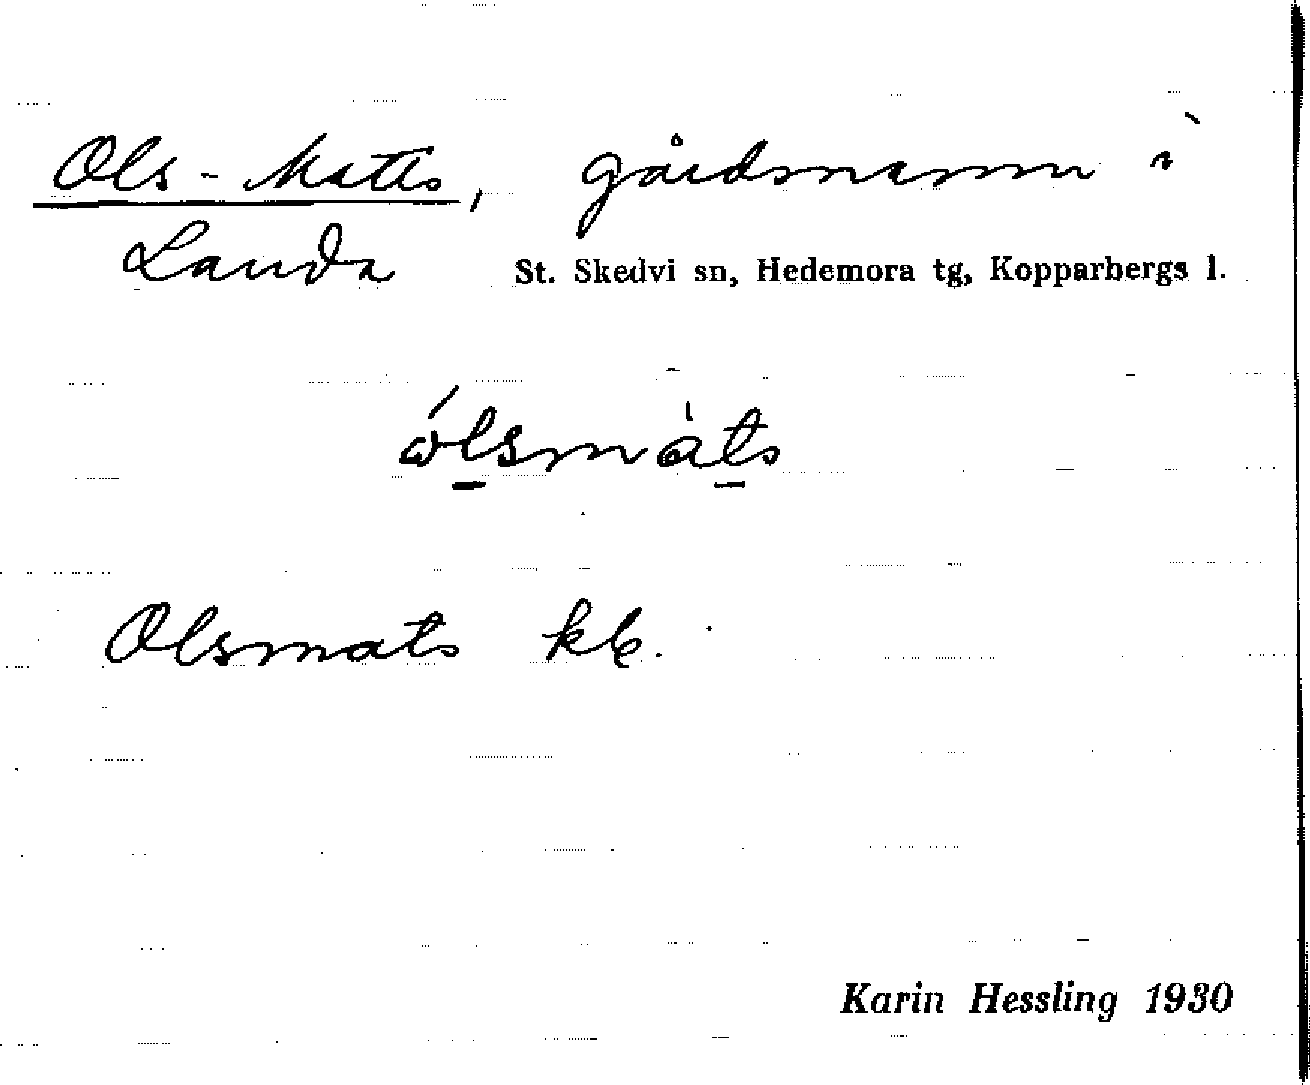 Ols-Matts, gårdsnamn i
Landa St. Skedvi sn, Hedemora tg, Kopparbergs l.
ólsmàts
Olsmats kb.
Karin Hessling 1930